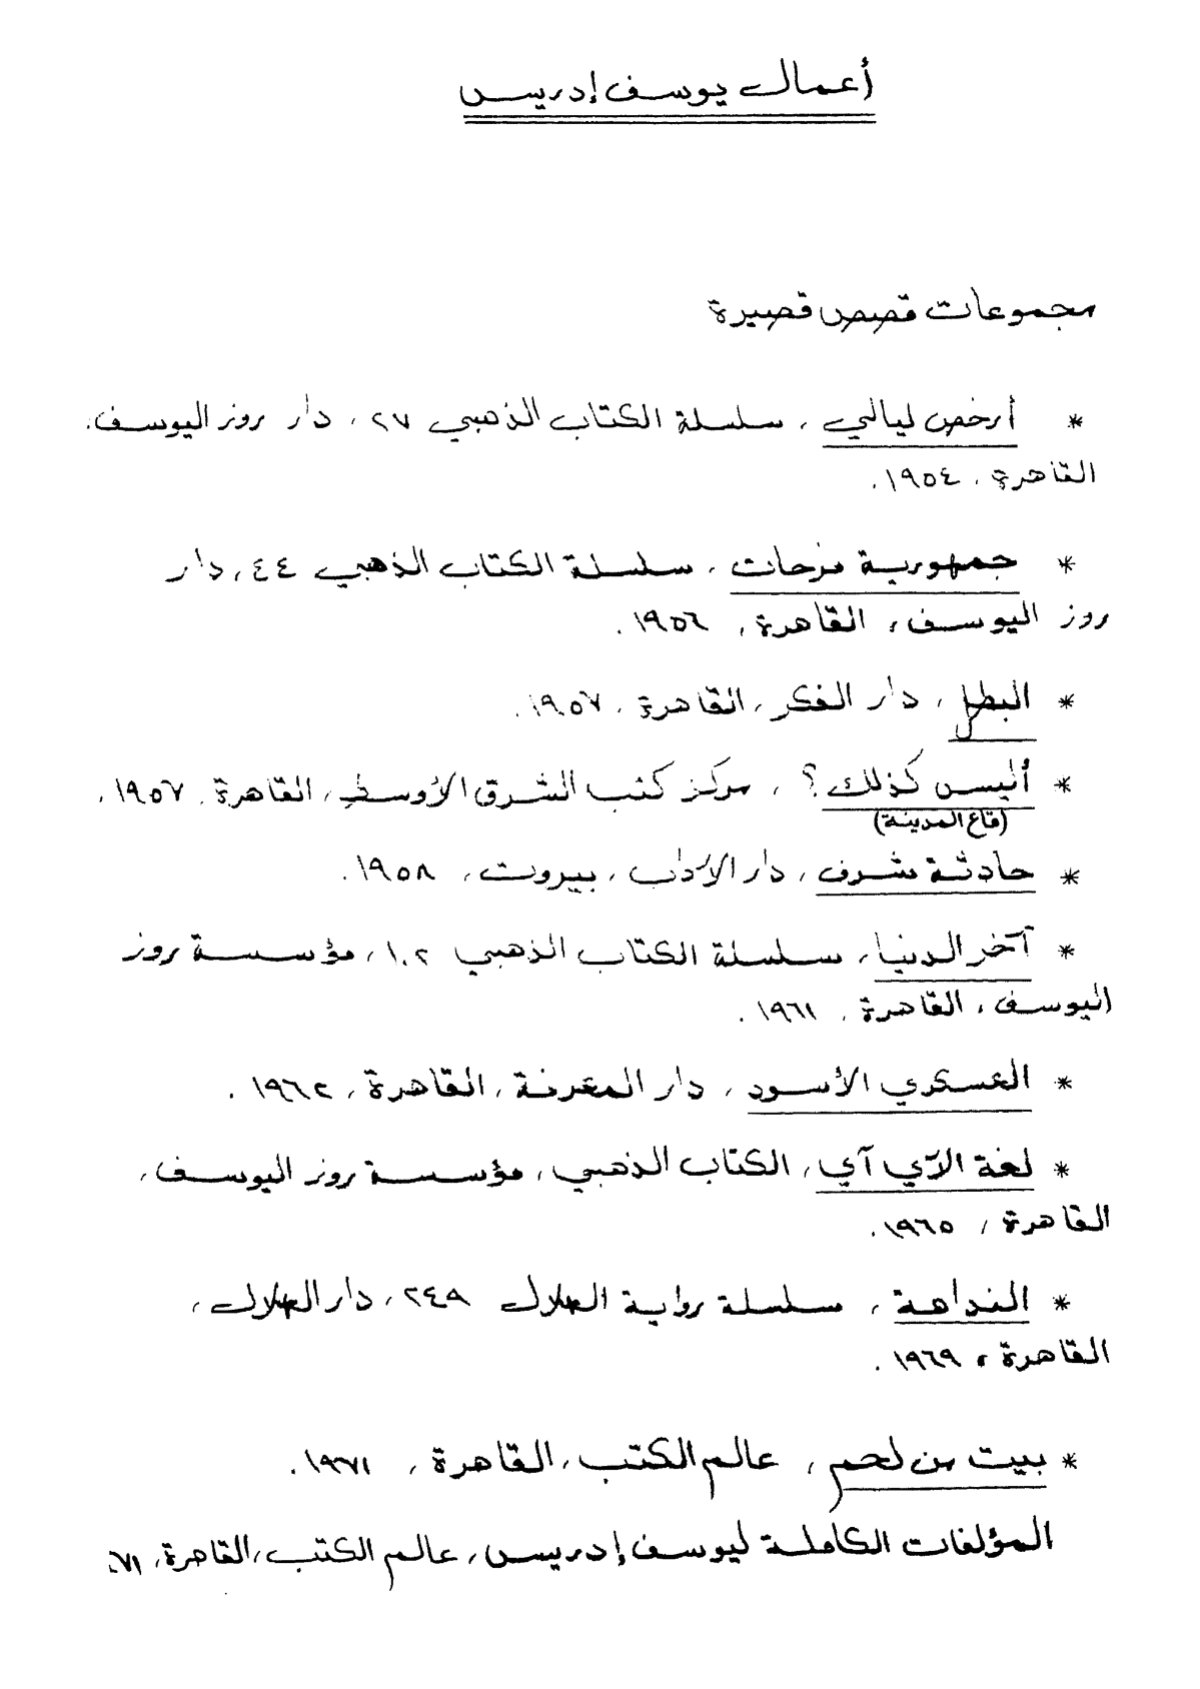 أعمال يوسف إدريس
مجموعات قصص قصيرة
* أرخص ليالي ، سلسلة الكتاب الذهبي ٢٧ ، دار روز اليوسف.
القاهرة ، ١٩٥٤ .
* جمهورية فرحات ، سلسلة الكتاب الذهبي ٤٤ ، دار
روز اليوسف ، القاهرة ، ١٩٥٦ .
* البطل ، دار الفكر ، القاهرة ، ١٩٥٧ .
* أليس كذلك ؟ ، مركز كتب الشرق الأوسط ، القاهرة ، ١٩٥٧ .
(قاع المدينة)
* حادثة شرف ، دار الآداب ، بيروت ، ١٩٥٨ .
* آخر الدنيا ، سلسلة الكتاب الذهبي ١٠٢ ، مؤسسة روز
اليوسف ، القاهرة ، ١٩٦١ .
* العسكري الأسود ، دار المعرفة ، القاهرة ، ١٩٦٢ .
* لغة الآي آي ، الكتاب الذهبي ، مؤسسة روز اليوسف ،
القاهرة ، ١٩٦٥ .
* النداهة ، سلسلة رواية الهلال ٢٤٩ ، دار الهلال ،
القاهرة ، ١٩٦٩ .
* بيت من لحم ، عالم الكتب ، القاهرة ، ١٩٧١ .
المؤلفات الكاملة ليوسف إدريس ، عالم الكتب ، القاهرة ، ٧١